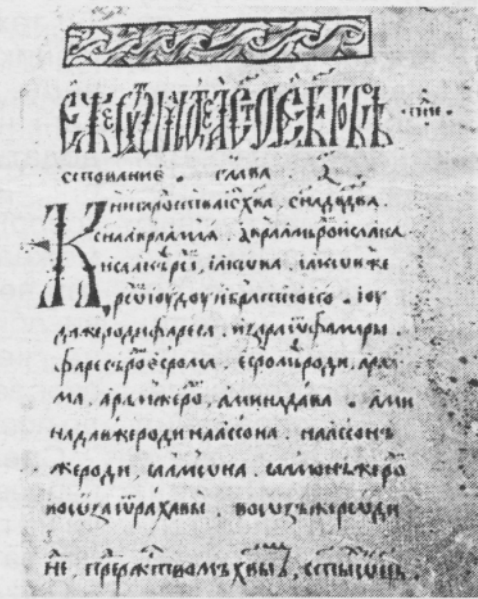 ствование . глава . а҃ .
Книга роⷣства іс҃ хв҃а , сн҃а дв҃два .
сн҃а авраамлѧ . авраамъ роⷣ исаака
исаакъ роⷣ , іакѡва . іакѡв же
роⷣ іоудоу и братию его . іоу
да же роди фареса . и зара ѿ фамары .
фаресъ роⷣ есрома . есромъ роди , ара
ма . арам же роⷣ , аминадава . ами
надав же роди наассона . наассонъ
же роди , салмѡна . салмонъ же роⷣ
вооза ѿ рахавы . воозъ же роди
нⷣе , преⷣ ржⷭтвомъ хв҃ымъ , ст҃ыⷯ ѿц҃ь .